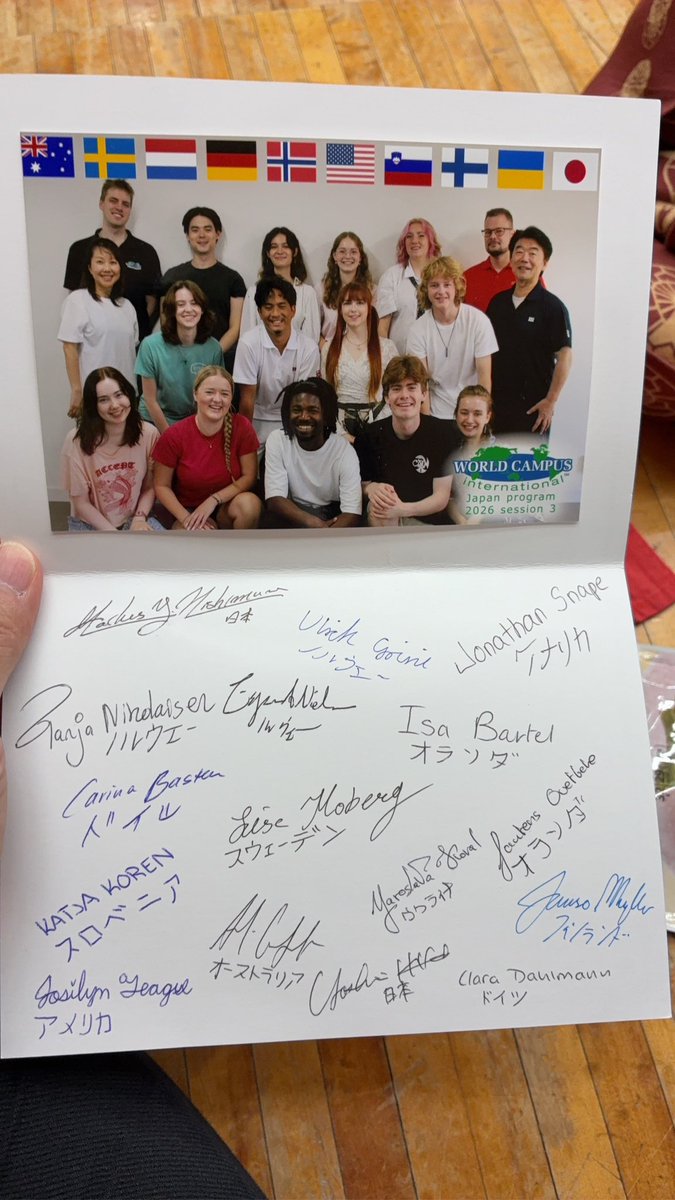 ACCEPT
WORLD CAMPUS
international™
Japan program
2026 session 3
日本
ノルウェー
Jonathan Snape
アメリカ
Ranja Nikolaisen
ノルウェー
ノルウェー
Isa Bartel
オランダ
Carina Bastan
ドイツ
Moberg
スウェーデン
オランダ
KATJA KOREN
スロベニア
Yaroslava Koval
ウクライナ
フィンランド
オーストラリア
Josilyn League
アメリカ
日本
Clara Dahlmann
ドイツ